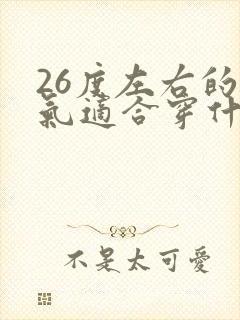 26度左右的
氣適合穿什
不是太可愛